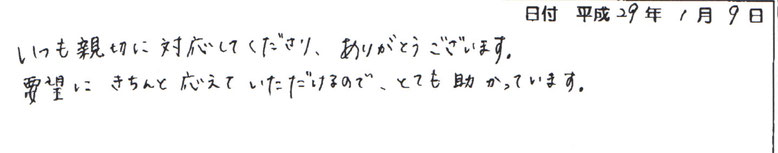 日付 平成29年1月9日
いつも親切に対応してくださり、ありがとうございます。
要望にきちんと応えていただけるので、とても助かっています。